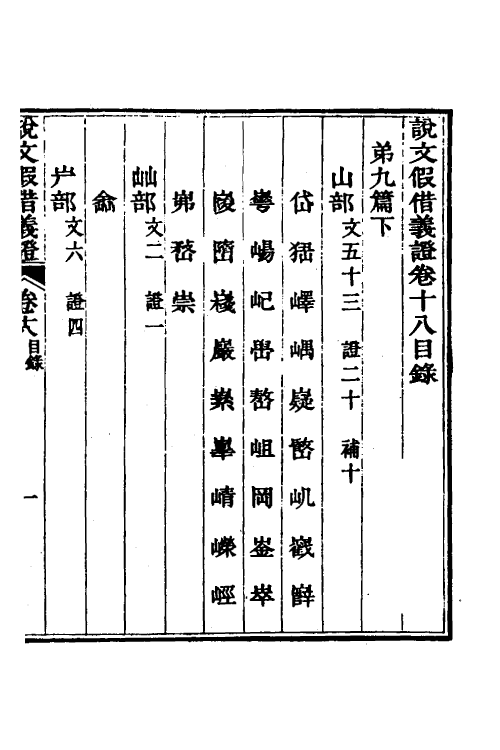 說文假借義證卷十八目錄
弟九篇下
山部文五十三 證二十 補十
岱 嶧 嵎 嶷 㠜 屼 巀 嶭
崵 屺 嶅 岨 岡 崟 崒
隓 嶘 巖 嶯 崝 嶸 巠
嵍 崇
屾部文二 證一
嵞
屵部文六 證四
說文假借義證 卷十八 目錄 一